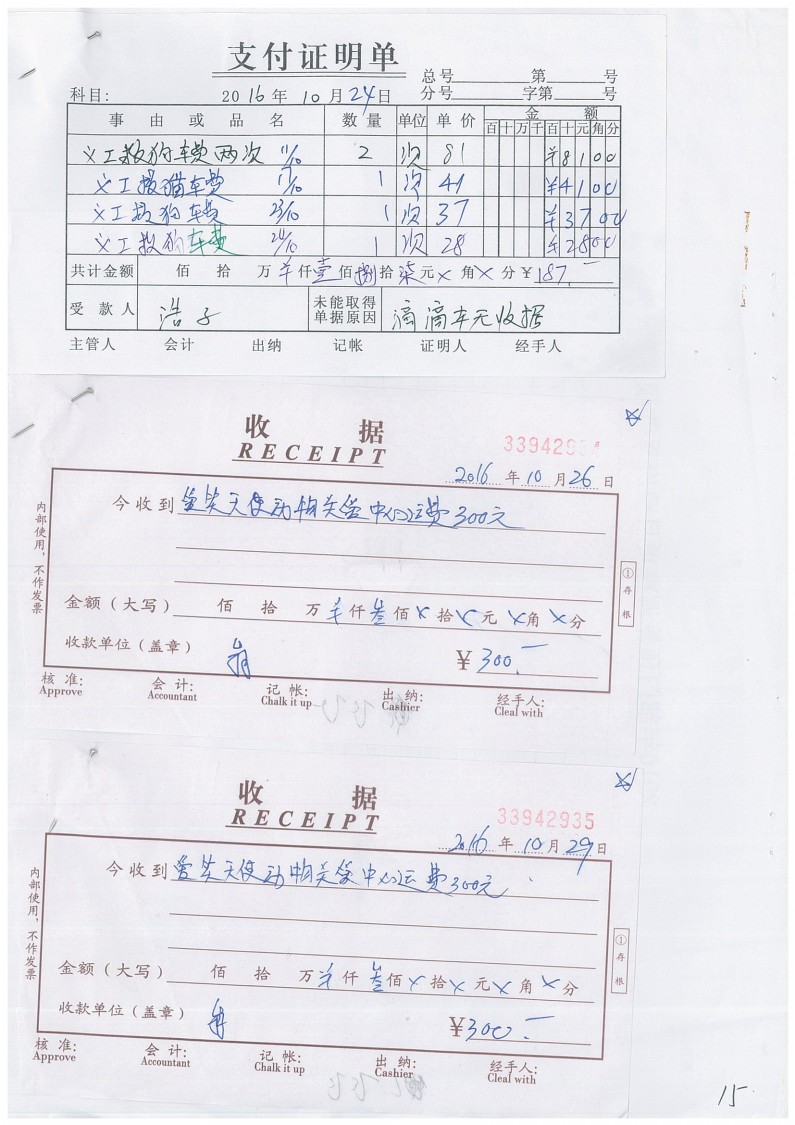 支付证明单
总号 第 号
科目: 2016年10月24日 分号 字第 号
事由或品名 数量 单位 单价 金额
百十万千百十元角分
义工救狗车费两次 11/10 2 次 81 ¥8100
义工救猫车费 17/10 1 次 41 ¥4100
义工救狗车费 23/10 1 次 37 ¥3700
义工救狗车费 24/10 1 次 28 ¥2800
共计金额 佰 拾 万 仟壹佰捌拾柒元×角×分¥187.-
受款人 浩子 未能取得单据原因 滴滴车无收据
主管人 会计 出纳 记帐 证明人 经手人
收据
RECEIPT
3394293
2016年10月26日
今收到 爱笑天使动物关爱中心运费300元
金额(大写) 佰 拾 万 仟叁佰×拾×元×角×分
收款单位(盖章) ¥300.-
核准: 会计: 记帐: 出纳: 经手人:
Approve Accountant Chalk it up Cashier Cleal with
内部使用,不作发票
①存根
收据
RECEIPT
33942935
2016年10月29日
今收到 爱笑天使动物关爱中心运费300元
金额(大写) 佰 拾 万 仟叁佰×拾×元×角×分
收款单位(盖章) ¥300.-
核准: 会计: 记帐: 出纳: 经手人:
Approve Accountant Chalk it up Cashier Cleal with
内部使用,不作发票
①存根
15